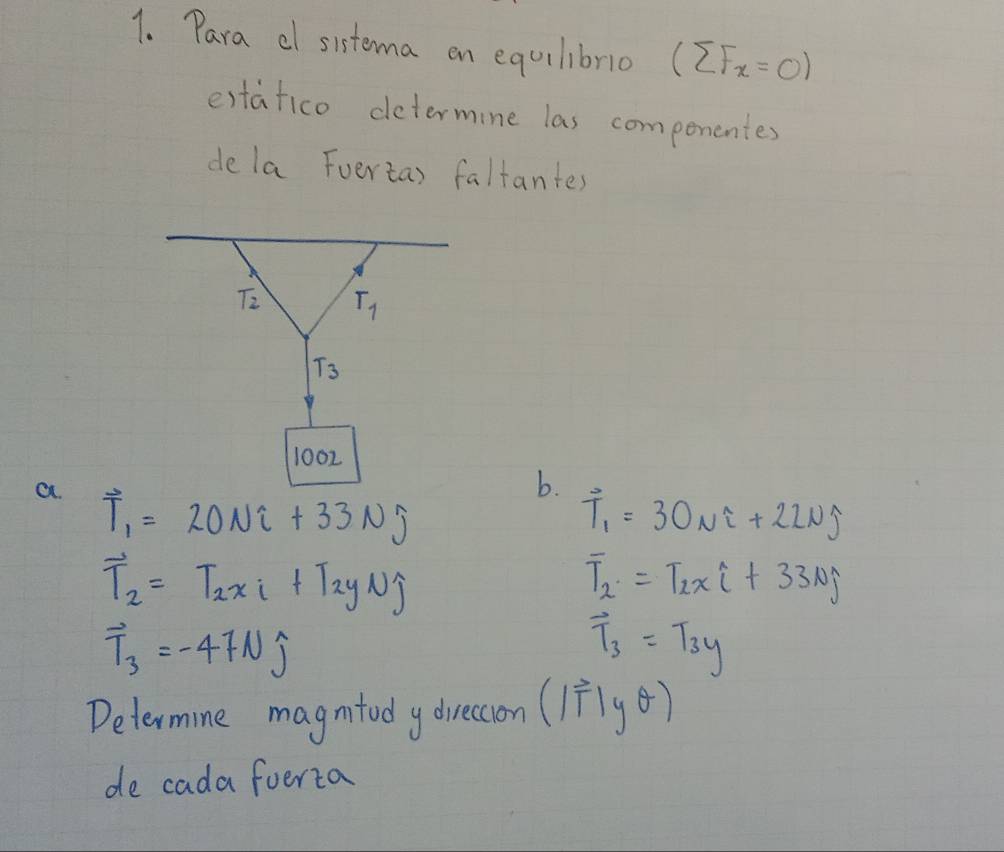 1. Para el sistema en equilibrio (ΣFx = 0)
estático determine las componentes
de la Fuerzas faltantes
T2
T1
T3
1002
a.
T⃗1 = 20Nî + 33Nĵ
T⃗2 = T2x i + T2y Nĵ
T⃗3 = -47N ĵ
b.
T⃗1 = 30Nî + 22Nĵ
T̄2. = T2x î + 33Nĵ
T⃗3 = T3y
Determine magnitud y direccion (|T⃗| y θ)
de cada fuerza